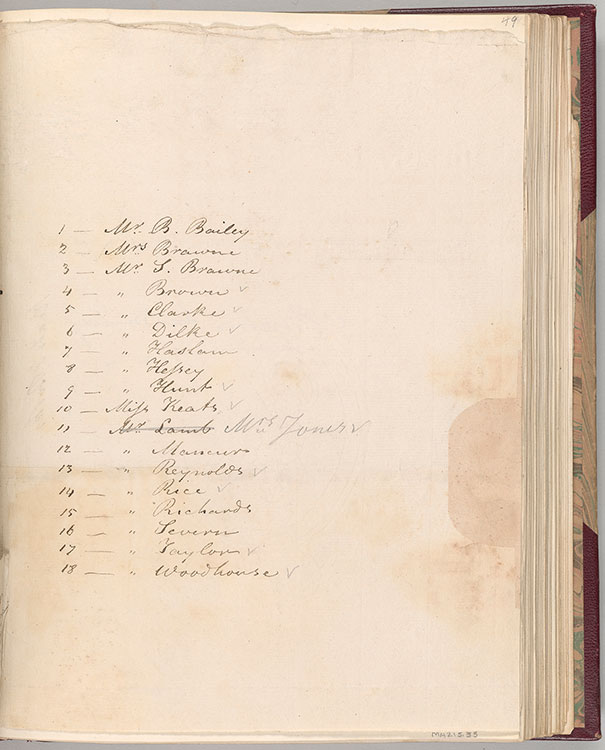 49
1 — Mr. B. Bailey
2 — Mrs Brawne
3 — Mr S. Brawne
4 — " Brown ✓
5 — " Clarke ✓
6 — " Dilke ✓
7 — " Haslam
8 — " Hessey
9 — " Hunt ✓
10 — Miss Keats ✓
11 — Mr Lamb Mrs Jones ✓
12 — " Mancur
13 — " Reynolds ✓
14 — " Rice ✓
15 — " Richards
16 — " Severn
17 — " Taylor ✓
18 — " Woodhouse ✓
MA 215.35